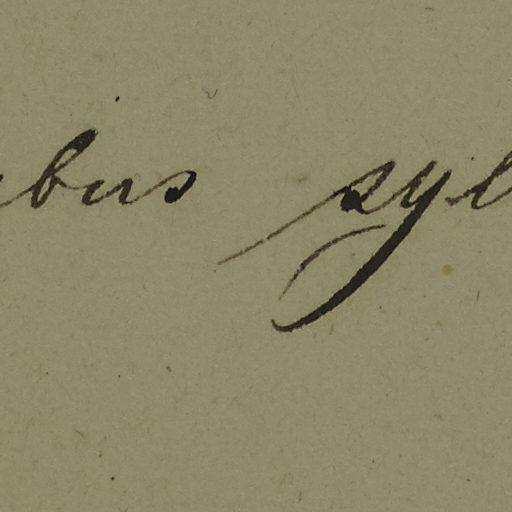 bus syl